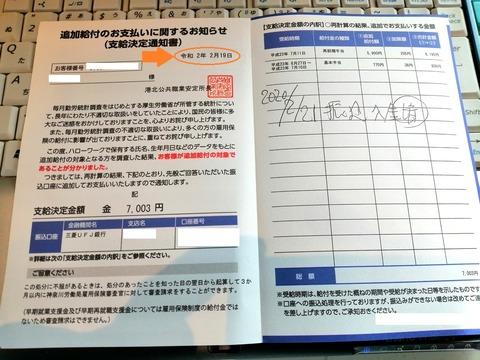 追加給付のお支払いに関するお知らせ
(支給決定通知書)
令和 2年 2月19日
お客様番号
様
港北公共職業安定所長
毎月勤労統計調査をはじめとする厚生労働省が所管する統計について、長年にわたり不適切な取扱いをしていたことにより、国民の皆様に多大なご迷惑をおかけしておりますことを、心よりお詫び申し上げます。
また、毎月勤労統計調査の不適切な取扱いにより、多くの方の雇用保険の給付に影響が出ておりますことに、重ねてお詫び申し上げます。
この度、ハローワークで保有する氏名、生年月日などのデータをもとに追加給付の対象となる方を調査した結果、お客様が追加給付の対象であることが分かりました。
つきましては、再計算の結果、下記のとおり、先般ご回答いただいた振込口座に追加してお支払いいたしますので通知します。
記
支給決定金額 金 7,003 円
金融機関名 支店名 口座番号
振込口座 三菱UFJ銀行
※詳細は次の「支給決定金額の内訳」をご参照ください。
ご留意ください
この処分に不服があるときは、処分のあったことを知った日の翌日から起算して3か月以内に神奈川労働局雇用保険審査官に対して審査請求をすることができます。
(早期就業支援及び早期再就職支援については雇用保険制度の給付金ではないため審査請求はできません。)
【支給決定金額の内訳】○再計算の結果、追加でお支払いする金額
受給時期 給付金の種類 ①追加給付額 ②加算額 ③合計金額(①+②)
平成23年 7月11日 再就職手当
平成23年 6月27日〜
平成23年 7月10日 基本手当
2020/2/21 振込 入金済
総額 7,003円
※受給時期は、給付を受けた概ねの期間や受給が決まった日等を示したものです
※口座への振込処理を行っておりますが、振込みができない場合は改めてご連
を差し上げますので、ご承知おきください。